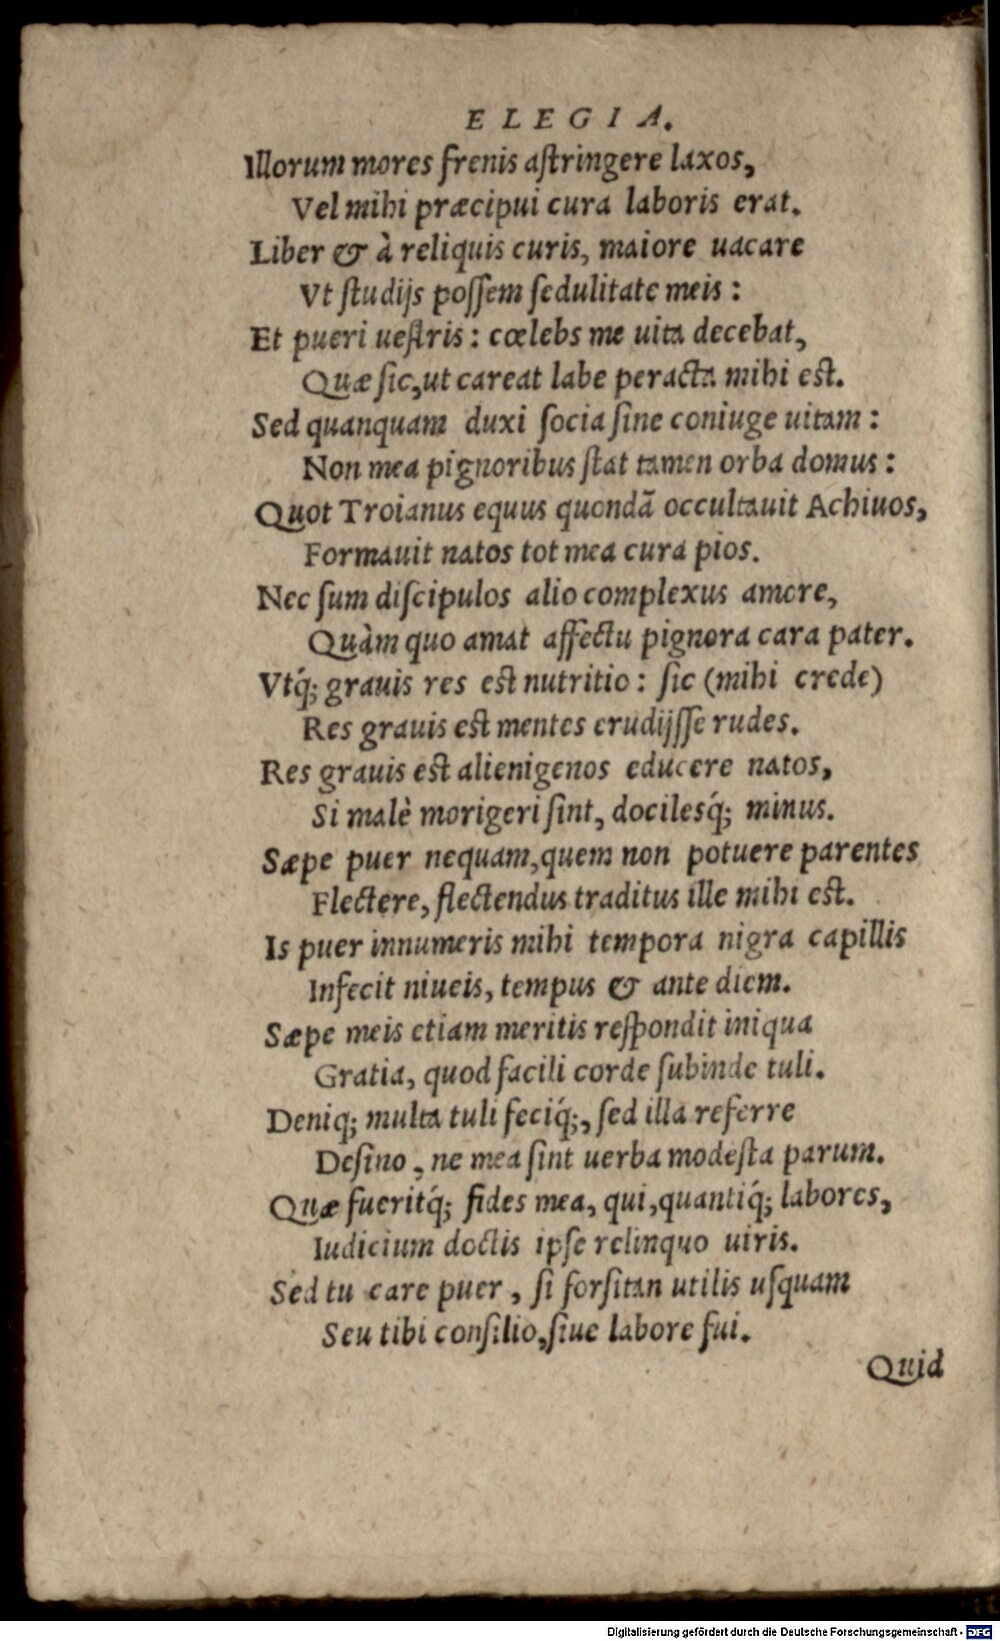 ELEGIA.
Illorum mores frenis aſtringere laxos,
Vel mihi præcipui cura laboris erat.
Liber & à reliquis curis, maiore uacare
Vt ſtudijs poſſem ſedulitate meis :
Et pueri ueſtris : cœlebs me uita decebat,
Quæ ſic, ut careat labe peracta mihi est.
Sed quanquam duxi ſocia ſine coniuge uitam :
Non mea pignoribus ſtat tamen orba domus :
Quot Troianus equus quondã occultauit Achiuos,
Formauit natos tot mea cura pios.
Nec ſum diſcipulos alio complexus amore,
Quàm quo amat affectu pignora cara pater.
Vtq́; grauis res est nutritio : ſic (mihi crede)
Res grauis est mentes erudijſſe rudes.
Res grauis est alienigenos educere natos,
Si malè morigeri ſint, docilesq́; minus.
Sæpe puer nequam, quem non potuere parentes
Flectere, flectendus traditus ille mihi est.
Is puer innumeris mihi tempora nigra capillis
Infecit niueis, tempus & ante diem.
Sæpe meis etiam meritis reſpondit iniqua
Gratia, quod facili corde ſubinde tuli.
Deniq; multa tuli feciq́;, ſed illa referre
Deſino, ne mea ſint uerba modeſta parum.
Quæ fueritq́; fides mea, qui, quantiq́; labores,
Iudicium doctis ipſe relinquo uiris.
Sed tu care puer, ſi forſitan utilis uſquam
Seu tibi conſilio, ſiue labore fui.
Quid
Digitalisierung gefördert durch die Deutsche Forschungsgemeinschaft - DFG